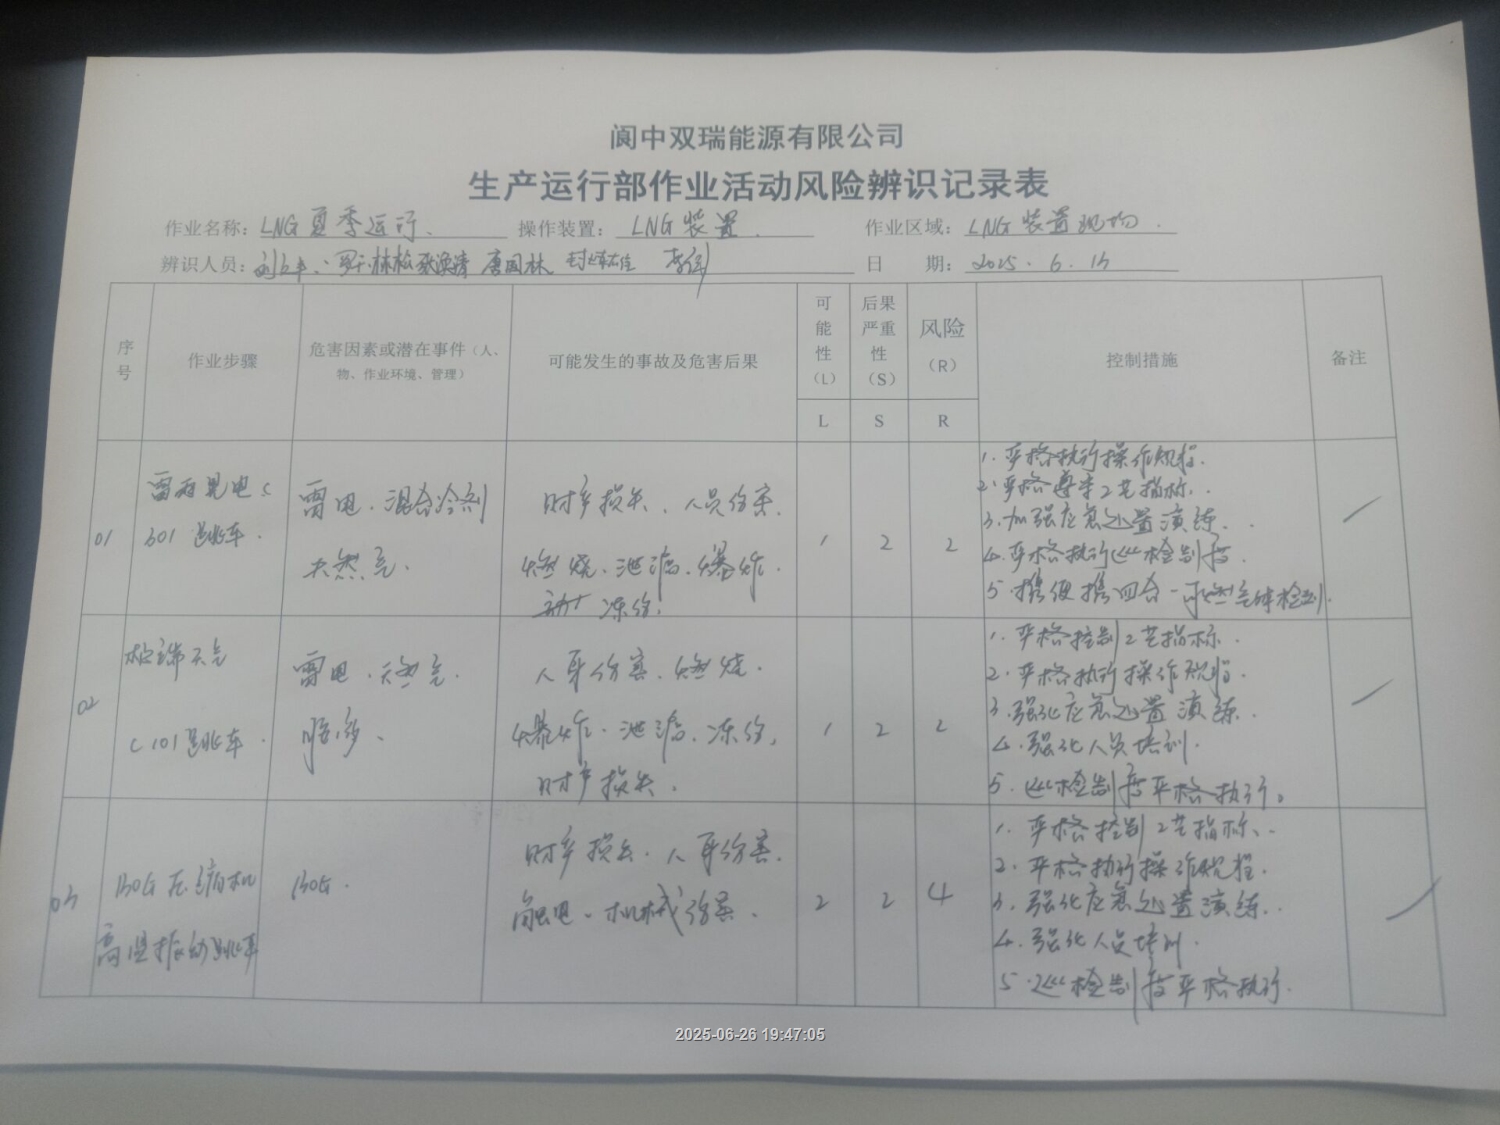 阆中双瑞能源有限公司
生产运行部作业活动风险辨识记录表
作业名称: LNG夏季运行. 操作装置: LNG装置. 作业区域: LNG装置现场.
辨识人员: 唐国林 日 期: 2025.6.15
序号 作业步骤 危害因素或潜在事件（人、物、作业环境、管理） 可能发生的事故及危害后果 可能性（L） 后果严重性（S） 风险（R） 控制措施 备注
L S R
01 雷雨晃电C301跳车. 雷电.混合冷剂 天然气. 财产损失、人员伤害. 燃烧.泄漏.爆炸. 冻伤. 1 2 2
1.严格执行操作规程.
2.严格遵守工艺指标.
3.加强应急处置演练.
4.严格执行巡检制度.
5.携便携四合一可燃气体检测.
02 极端天气 C101跳车. 雷电.天燃气. 人身伤害.燃烧. 爆炸.泄漏.冻伤, 财产损失. 1 2 2
1.严格控制工艺指标.
2.严格执行操作规程.
3.强化应急处置演练.
4.强化人员培训.
5.巡检制度严格执行。
03 BOG压缩机高温振动跳车 BOG. 财产损失.人身伤害. 触电.机械伤害. 2 2 4
1.严格控制工艺指标.
2.严格执行操作规程.
3.强化应急处置演练.
4.强化人员培训.
5.巡检制度严格执行.
2025-06-26 19:47:05